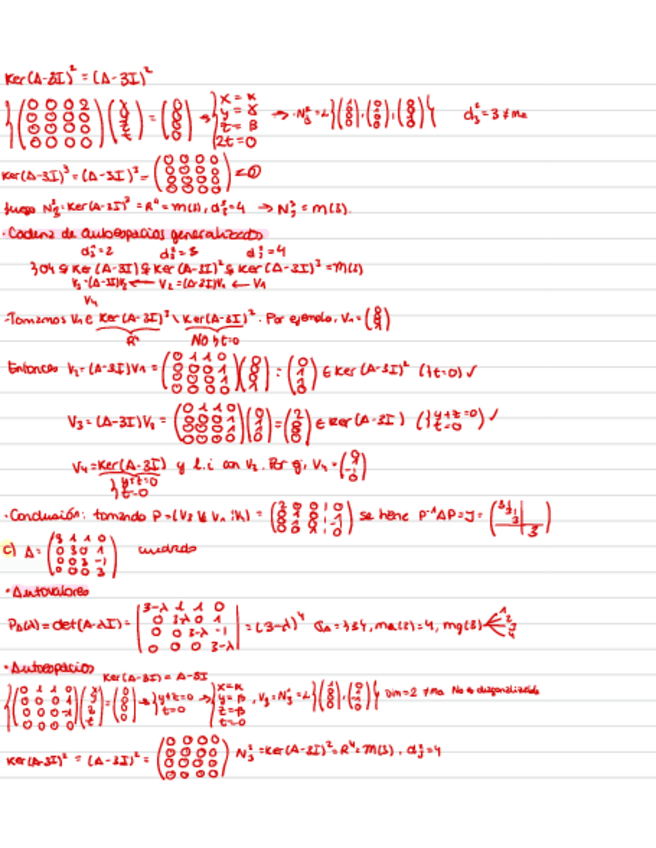 Ker(A-3I)² = (A-3I)²
{(0 0 0 2 / 0 0 0 0 / 0 0 0 0 / 0 0 0 0)(x / y / z / t) = (0 / 0 / 0 / 0) → {x = α / y = / z = β / 2t = 0 → N₃² = L{( ), ( ), ( )} d₃² = 3 ≠ ma
Ker(A-3I)³ = (A-3I)³ = (0 0 0 0 / 0 0 0 0 / 0 0 0 0 / 0 0 0 0)
luego N₃³ = Ker(A-3I)³ = R⁴ = M(3), d₃³ = 4 → N₃³ = M(3).
· Cadena de autoespacios generalizados
d₃¹ = 2 d₃² = 3 d₃³ = 4
{0} ⊊ Ker(A-3I) ⊊ Ker(A-3I)² ⊊ Ker(A-3I)³ = M(3)
V₃ = (A-3I)V₂ ← V₂ = (A-3I)V₁ ← V₁
V₄
-Tomamos V₁ ∈ Ker(A-3I)³ \ Ker(A-3I)². Por ejemplo, V₁ = (0 / 0 / 0 / 1)
R⁴ No {t=0
Entonces V₂ = (A-3I)V₁ = (0 1 1 0 / 0 0 0 1 / 0 0 0 1 / 0 0 0 0)(0 / 0 / 0 / 1) = (0 / 1 / 1 / 0) ∈ Ker(A-3I)² ({t=0) ✓
V₃ = (A-3I)V₂ = (0 1 1 0 / 0 0 0 1 / 0 0 0 1 / 0 0 0 0)(0 / 1 / 1 / 0) = (2 / 0 / 0 / 0) ∈ Ker(A-3I) ({y+z=0 / t=0) ✓
V₄ = Ker(A-3I) y l.i con V₃. Por ej, V₄ = (0 / 1 / -1 / 0)
{y+z=0 / t=0
· Conclusión: tomando P = (V₃ V₂ V₁ | V₄) = (2 0 0 | 0 / 0 1 0 | 1 / 0 1 0 | -1 / 0 0 1 | 0) se tiene P⁻¹AP = J = (3 1 / 3 1 / 3 | 3)
c) A = (3 1 1 0 / 0 3 0 1 / 0 0 3 -1 / 0 0 0 3) cuadrada
· Autovalores
P_A(λ) = det(A-λI) = |3-λ 1 1 0 / 0 3-λ 0 1 / 0 0 3-λ -1 / 0 0 0 3-λ| = (3-λ)⁴ σ_A = {3}, ma(3) = 4, mg(3) 1 2 3 4
· Autoespacios
Ker(A-3I) = A-3I
{(0 1 1 0 / 0 0 0 1 / 0 0 0 -1 / 0 0 0 0)(x / y / z / t) = (0 / 0 / 0 / 0) → {y+z=0 / t=0 → {x=α / y=β / z=-β / t=0, V₃ = N₃¹ = L{( ), ( )} Dim=2 ≠ ma No es diagonalizable
Ker(A-3I)² = (A-3I)² = (0 0 0 0 / 0 0 0 0 / 0 0 0 0 / 0 0 0 0) N₃² = Ker(A-3I)² = R⁴ = M(3), d₃² = 4